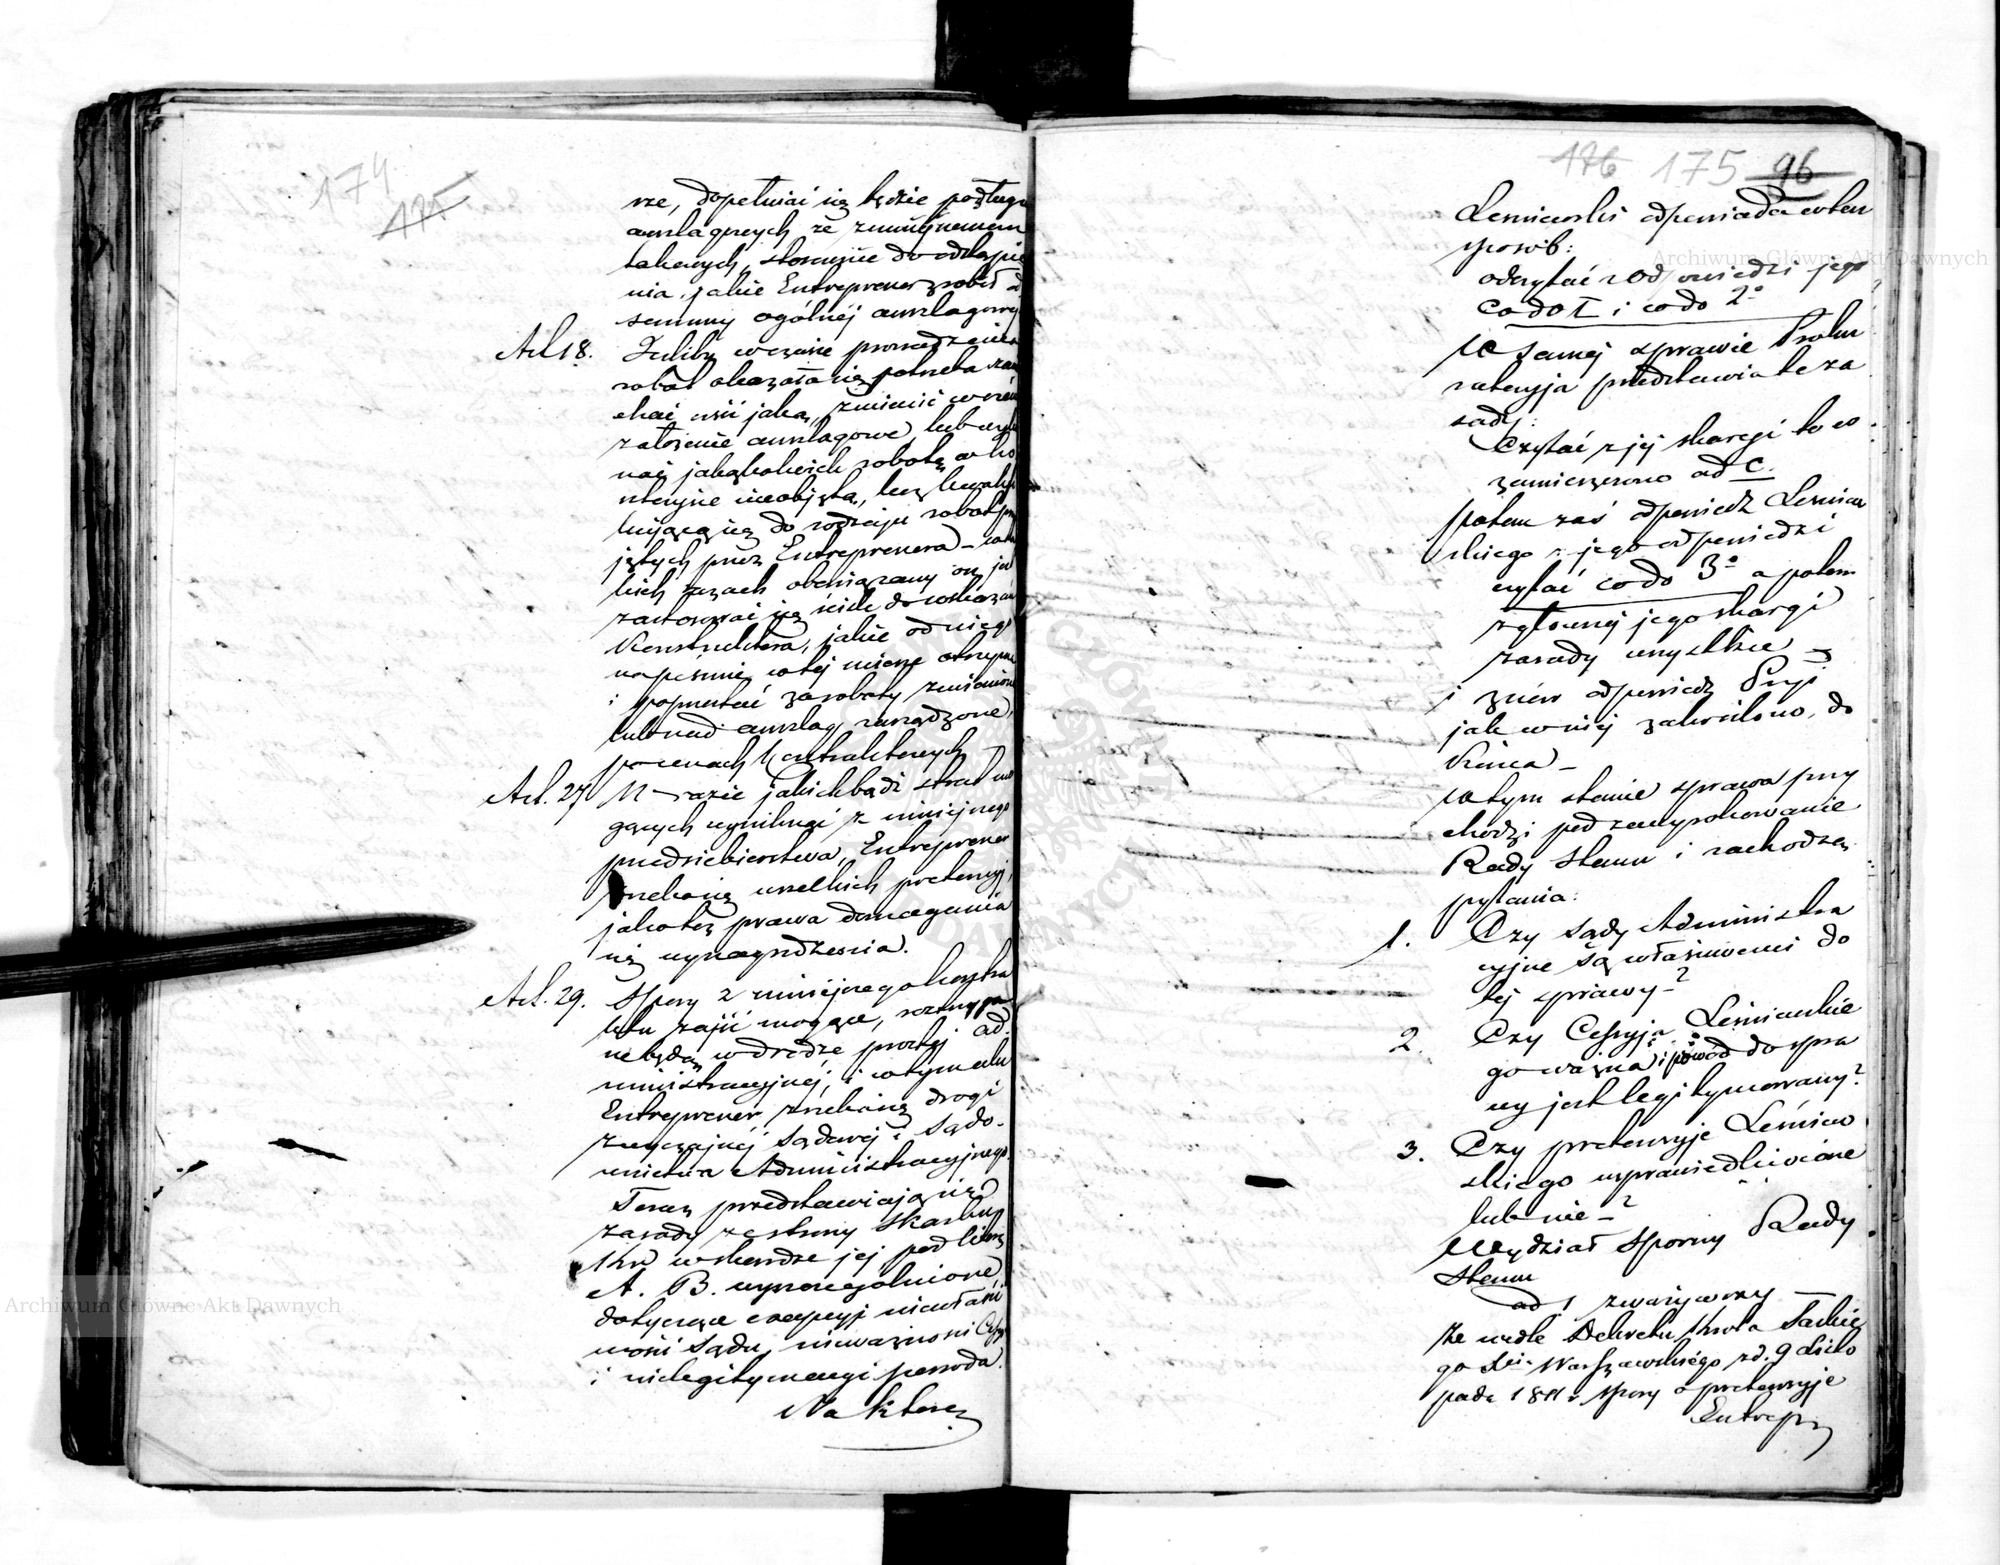 174
175
rze, dopełniać się będzie podług
anszlagowych ze zmniejszeniem
takowych, stosujące do odstąpie
nia, jakie Entreprener zrobił od
summy ogólnéj anszlagowej
Art 18. Jeśliby w czasie prowadzenia
robót okazała się potrzeba zanie
chać coś jaką, zmienić w czém
założenie anszlagowe, lub wyko
nać jakąkolwiek robotę w ko
sztorysie nieobjętą, lecz kwalifi
kującą się do rodzaju robót przy
jętych przez Entreprenera – w ta
kich razach obowiązany on jest
zastosować się ściśle do wskazań
Konstruktora, jakie od niego
na piśmie w tej mierze otrzyma
i poprzestać za roboty zmienione
lub nad anszlag zarządzone,
po cenach kontraktowych –
Art. 27 W razie jakichbądź strat mo
gących wyniknąć z niniejszego
przedsiebierstwa, Entreprener
zrzeka się wszelkich pretensyj,
jako też prawa domagania
się wynagrodzenia.
Art. 29. Spory z niniejszego kontra
ktu zajść mogące, rozstrzyga
ne będą w drodze prostej ad
ministracyjnéj, i w tym celu
Entreprener zrzeka się drogi
zwyczajnéj sądowej i sądo-
wnictwa Administracyjnego.
Teraz przedstawiają się
zasady ze strony Skarbu
Kr. w skardze jej pod literą
A. B. wyszczególnione
dotyczące excepcyj niewłaści
wości sądu, nieważności Cessyi
i nielegitymacyi powoda.
Na które
176 175 96
Leśniewski odpowiada w ten
sposób:
odczytać z Odpowiedzi jego
co do 1 i co do 2º
W samej sprawie Proku
ratoryja przedstawia te za
sady:
Czytać z jej skargi to co
zamieszczono ad C.
potem zaś odpowiedź Leśniew
skiego z jego odpowiedzi
czytać co do 3º a potem
z głównej jego skargi
zasady wszystkie –
i znów odpowiedź Prup
jak w niej zakreślono, do
Końca –
W tym stanie sprawa przy
chodzi pod zawyrokowanie
Rady Stanu i zachodzą
pytania:
1. Czy Sądy Administra
cyjne są właściwemi do
tej sprawy–?
2. Czy Cessyja Leśniewskie
go ważna i powód do spra
wy jest legitymowany?
3. Czy pretensyje Leśniew
skiego usprawiedliwione
lub nie–?
Wydział Sporny Rady
Stanu
ad 1 zważywszy –
że wedle Dekretu Króla Saskie
go Xcia Warszawskiego z d. 9 Listo
pada 1811 r spory o pretensyje
Entrepr
Archiwum Główne Akt Dawnych
Archiwum Główne Akt Dawnych